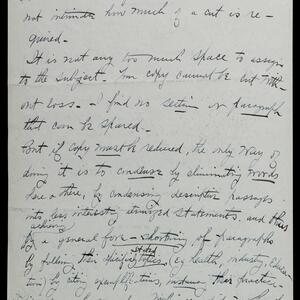 not how much of a cut is re-
quired -
It is not any too much space to assign
to the subject. Your copy cannot be cut with-
out loss. - I find no section or paragraph
that can be spared -
But if copy must be reduced, the only way of
doing it is to condense by eliminating words
here & there, by condensing descriptive passages
into less interesting statements, and thus
achieving
by a general fore-shortening of paragraphs
by
(eg health, industry, Educa-
tion) by citing their practice -